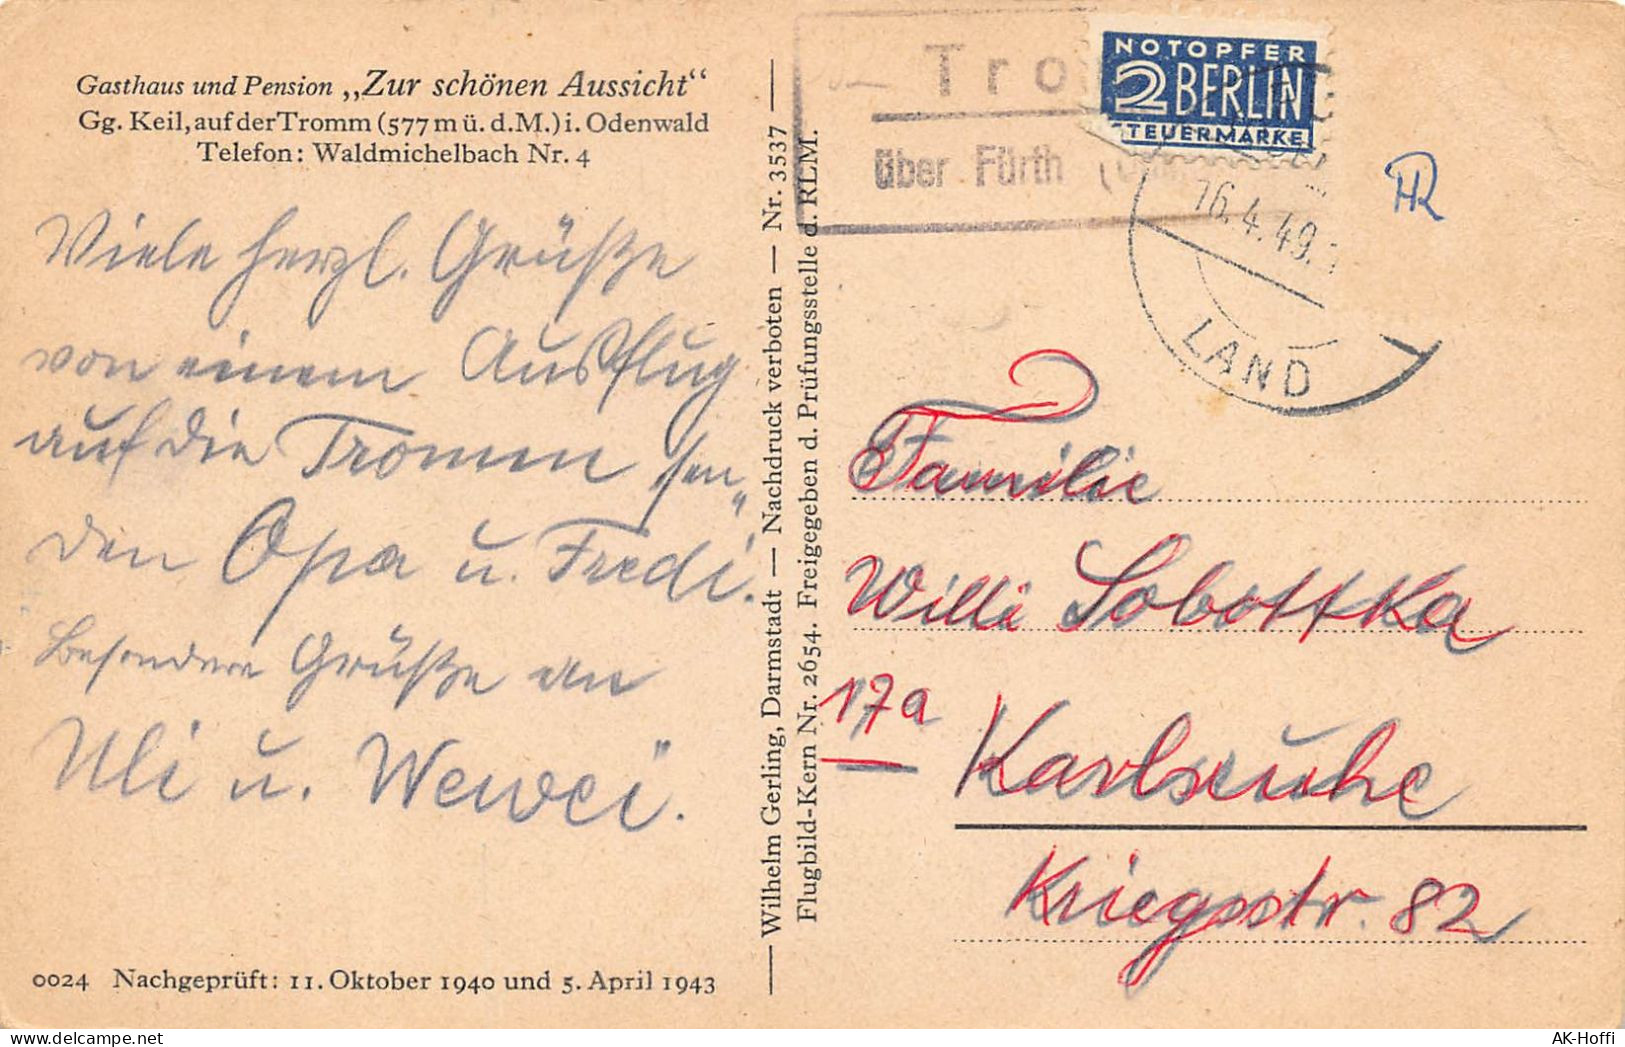 Gasthaus und Pension „Zur schönen Aussicht“
Gg. Keil, auf der Tromm (577 m ü. d. M.) i. Odenwald
Telefon: Waldmichelbach Nr. 4
Viele herzl. Grüße
von einem Ausflug
auf die Tromm sen„
den Opa u. Fredi.
Besondere Grüße an
Uli u. Wewei.
0024 Nachgeprüft: 11. Oktober 1940 und 5. April 1943
— Wilhelm Gerling, Darmstadt — Nachdruck verboten — Nr. 3537 —
Flugbild-Kern Nr. 2654. Freigegeben d. Prüfungsstelle d. RLM.
Tro
über Fürth
NOTOPFER
2 BERLIN
STEUERMARKE
16.4.49
LAND
Familie
Willi Sobottka
17a
Karlsruhe
Kriegsstr. 82
AK-Hoffi